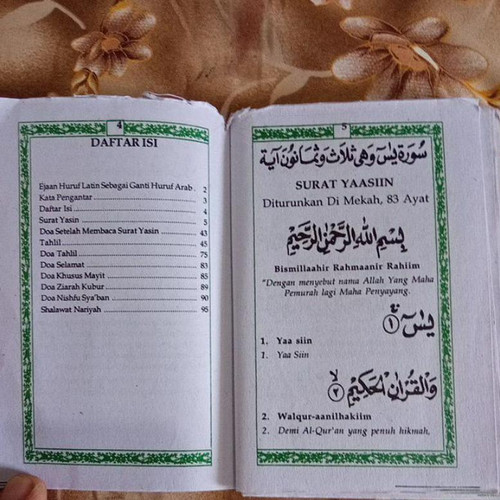 4
DAFTAR ISI
Ejaan Huruf Latin Sebagai Ganti Huruf Arab . 2
Kata Pengantar 3
Daftar Isi 4
Surat Yasin 5
Doa Setelah Membaca Surat Yasin 43
Tahlil 45
Doa Tahlil 75
Doa Selamat 83
Doa Khusus Mayit 85
Doa Ziarah Kubur 89
Doa Nishfu Sya'ban 90
Shalawat Nariyah 95
5
سُورَة يس وَهِيَ ثَلَاثٌ وَثَمَانُونَ آيَة
SURAT YAASIIN
Diturunkan Di Mekah, 83 Ayat
بِسْمِ اللهِ الرَّحْمٰنِ الرَّحِيْمِ
Bismillaahir Rahmaanir Rahiim
"Dengan menyebut nama Allah Yang Maha
Pemurah lagi Maha Penyayang.
يٰسٓ ﴿١﴾
1. Yaa siin
1. Yaa Siin
وَالْقُرْاٰنِ الْحَكِيْمِ ﴿٢﴾
2. Walqur-aanilhakiim
2. Demi Al-Qur'an yang penuh hikmah,